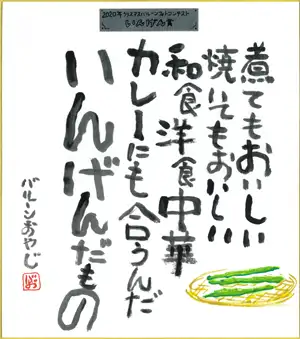 2020年クリスマスバルーンフォトコンテスト
いんげん賞
煮てもおいしい
焼いてもおいしい
和食洋食中華
カレーにも合うんだ
いんげんだもの
バルーンおやじ